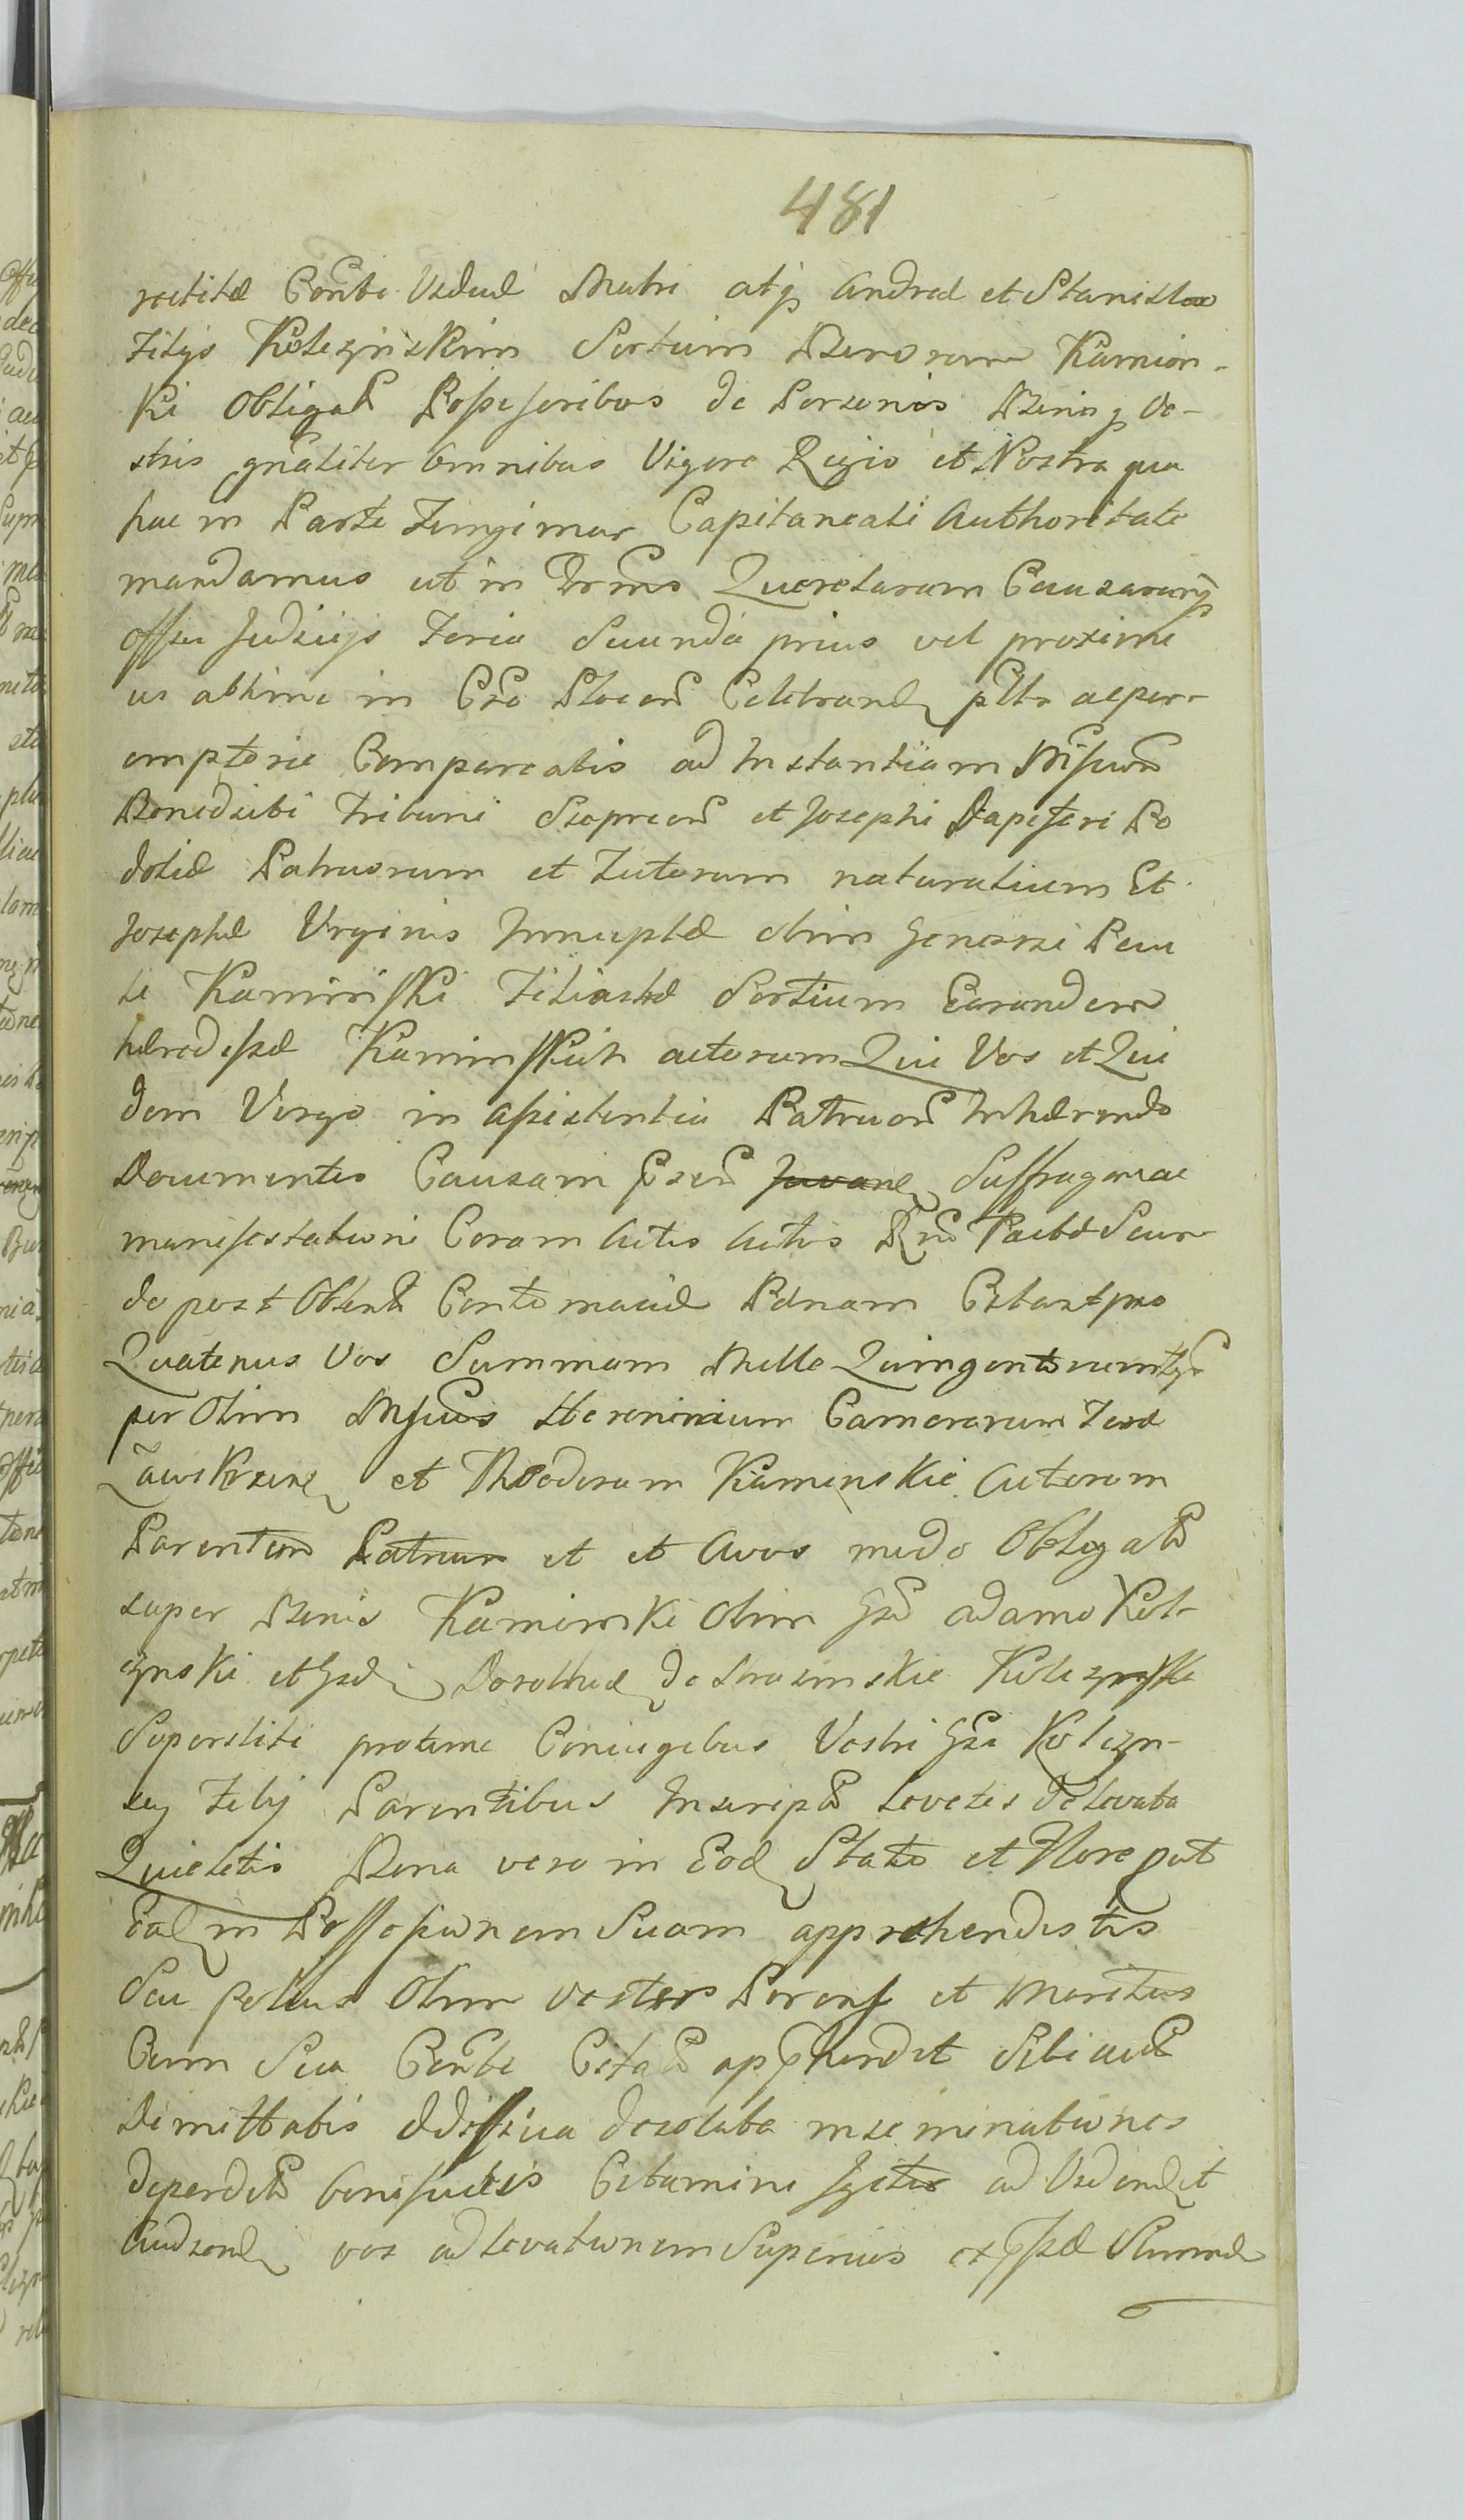 481
relitæ Conthe Viduæ Matri atq Andreæ et Stanislao
Filijs Koleznskim Sortium Bonorum Kamion-
ki Obligat Possessoribus de Personis Bonisq Ve-
stris gnaliter omnibus Vigore Regio et Nostra qua
hac in Parte Fungimur Capitaneali Authoritate
mandamus ut in Trmis Querelarum Causarumq
offii Judiciys Feria Secunda prius vel proxime
us abhinc in Cro Plocen Celebrand pltr acper-
emptorie Compareatis ad Instantiam Mfcorum
Benedicti Tribuni et Josephi Dapiferi Po
doliæ Patruorum et Tutorum naturalium Et
Josephæ Virginis Innuptæ olim Generosi Pau
li Kaminski Filiastæ Sortium Earundem
hæredissæ Kaminskich actorum Qui Vos et Qui
dem Virgo in assistentia Patruor Inhærendo
Documentis Causam Suffragan ac
manifestationi Coram Actis Actis factæ Secun
do post Obtent Contumaciæ Pænam Citant pro
Quatenus Vos Summam Mille Quingentorum
per Olim Mfcus Hieronimum Camerarium Terræ
Zawskrzen et Theodorum Kaminskie Actorum
Parentem Patruum et et Avos modo Obligato
super Bonis Kamionki Olim Gso Adamo Kol-
eznski et Gsæ Dorotheæ de Koleznska
Superstiti protunc Coniugibus Vestri Gsi Kolezn-
scy Filij Parentibus Inscript Levetis de Levata
Quietetis Bona vero in Eod Statu et More put
Ead in Possessionem Suam apprehendistis
Seu potius Olim vester Parens et Maritus
Cum Sua Conthe Citata apphendit
Dimittatis Ædificia desolata inseminationes
deperdit bonificetis Citamini Igitur ad Videnđ et
Audiend vos ad levationem Superius exssæ Summæ